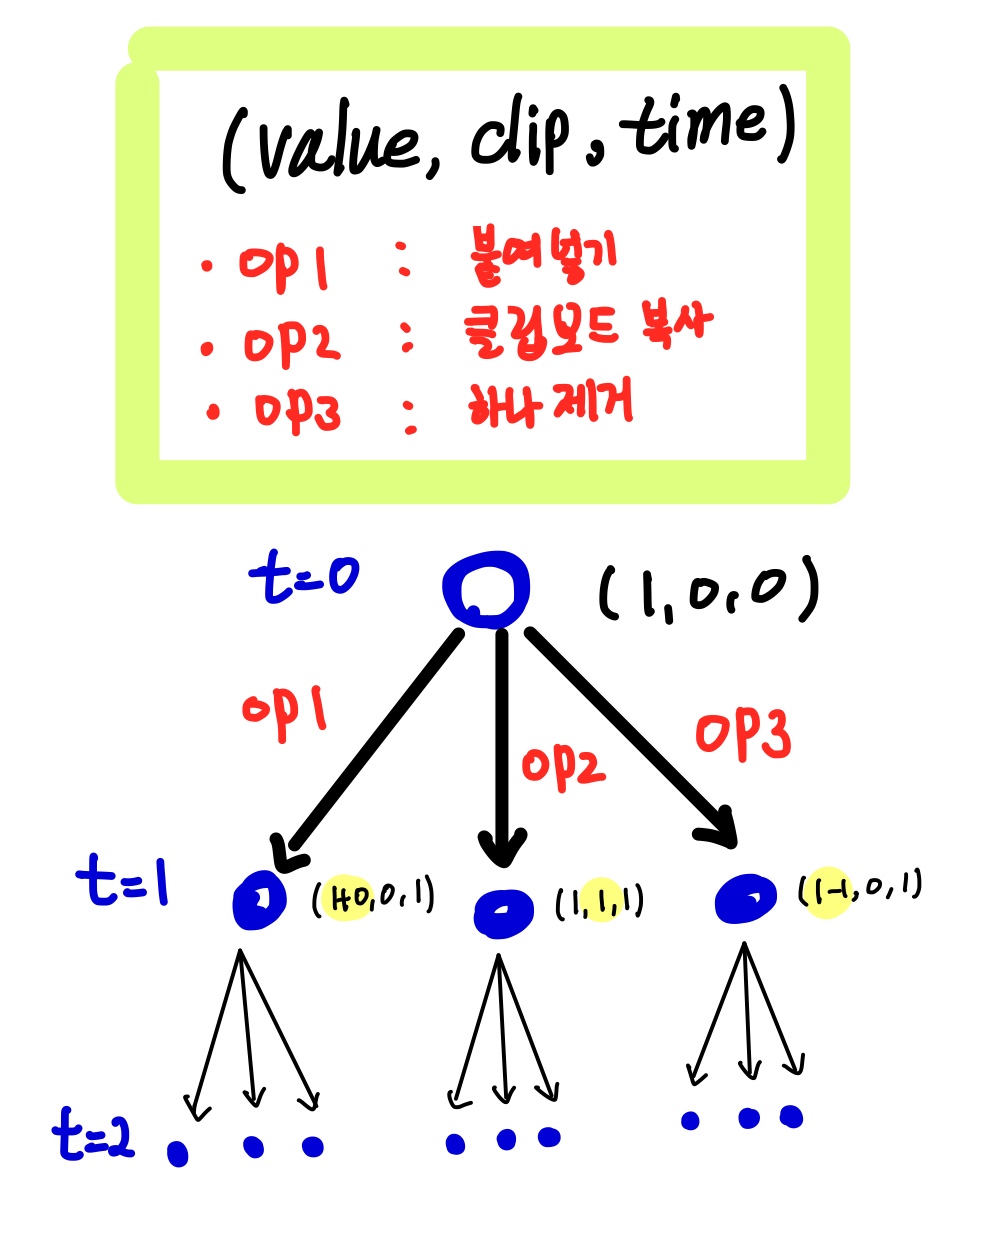 (value, clip, time)
· op1 : 붙여넣기
· op2 : 클립보드 복사
· op3 : 하나 제거
t=0 (1,0,0)
op1 op2 op3
t=1 (1+0,0,1) (1,1,1) (1-1,0,1)
t=2